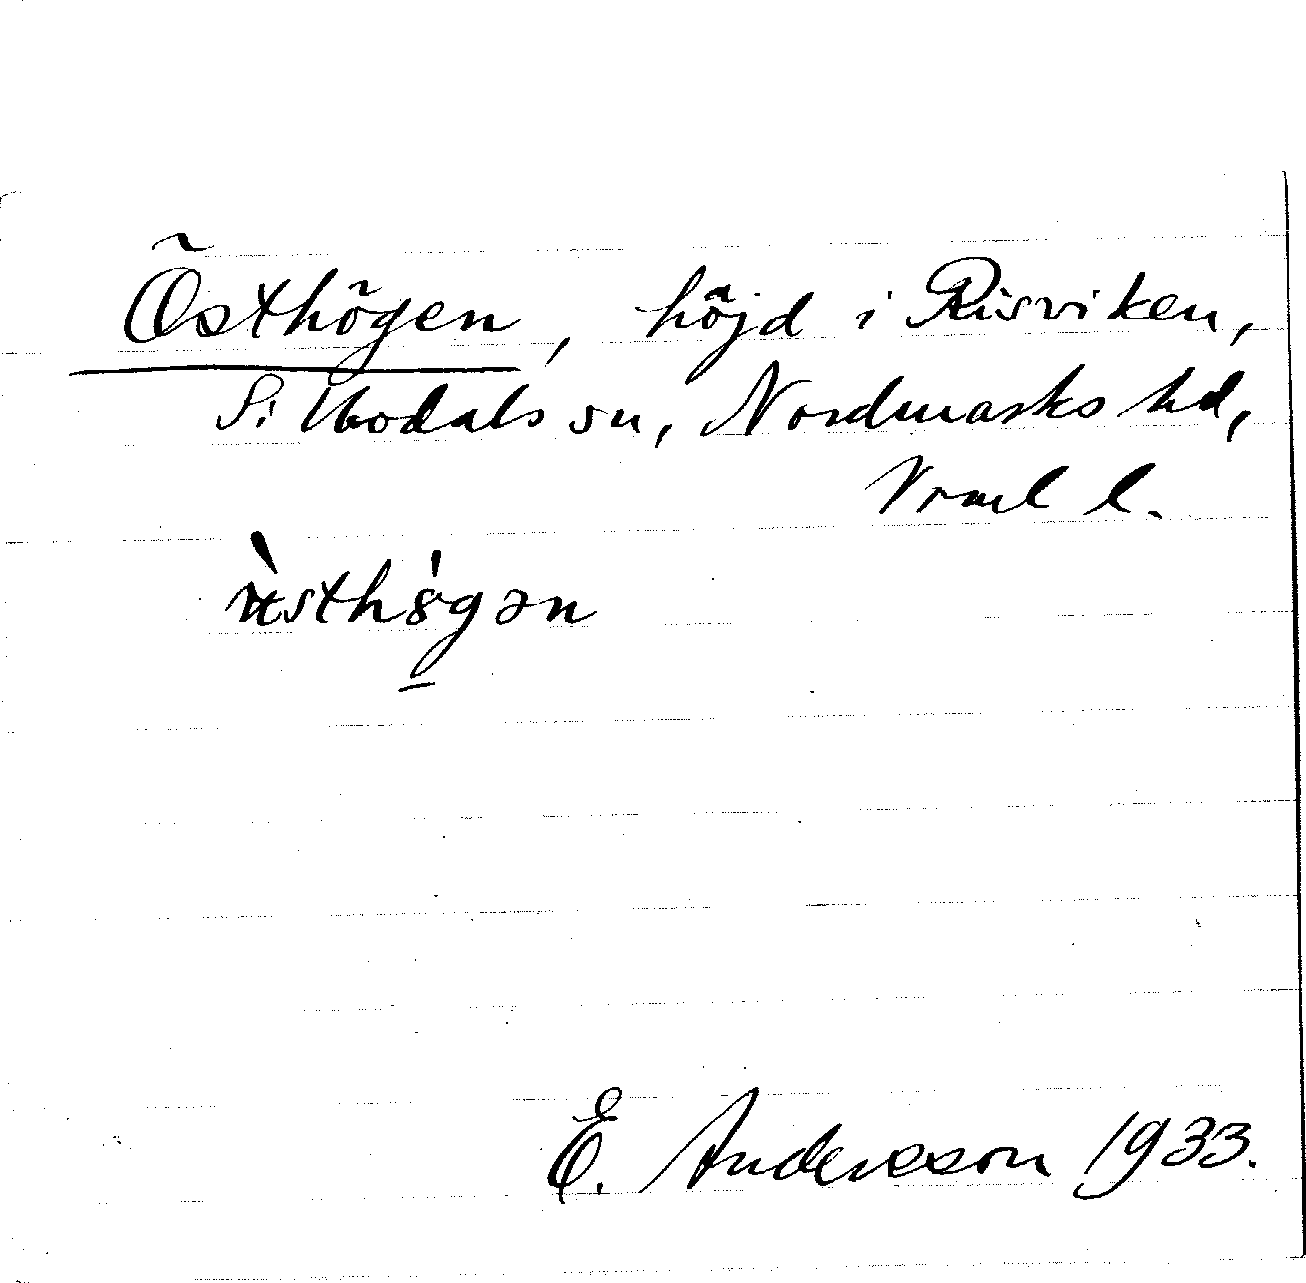 Östhögen, höjd i Risviken,
Sillbodals sn, Nordmarks hd,
Vrml l.
E. Andersson 1933.